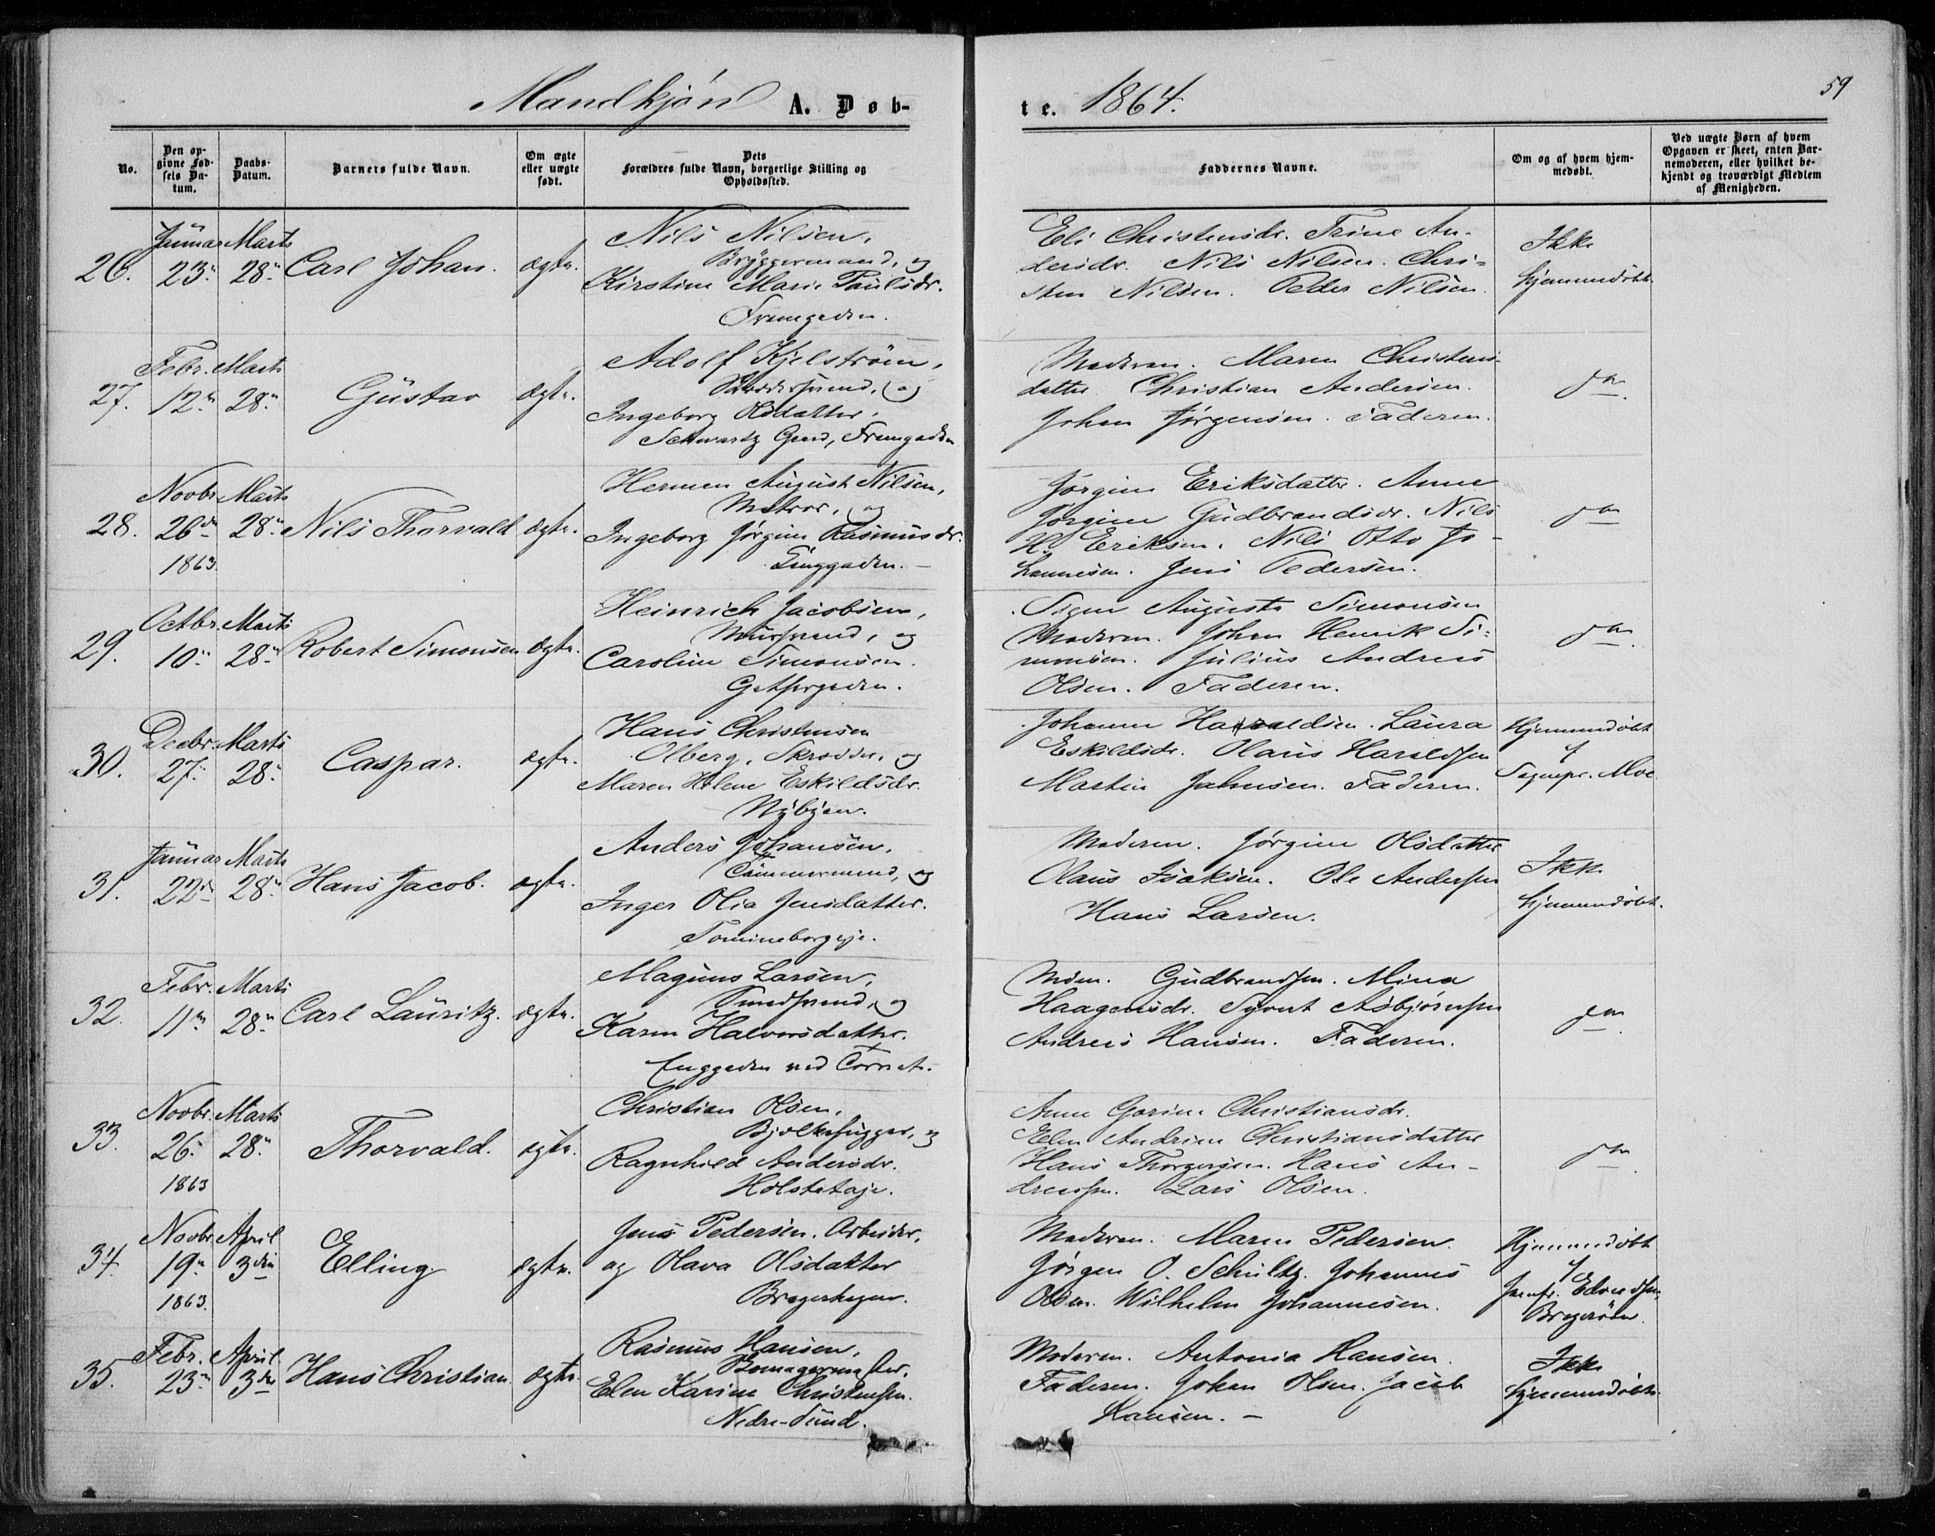 Mandkjøn A. Døb-
te. 1864.
59
No.
Den op-
givne Fød-
sels Da-
tum.
Daabs-
Datum.
Barnets fulde Navn.
Om ægte
eller uægte
født.
Dets
Forældres fulde Navn, borgerlige Stilling og
Opholdssted.
Faddernes Navne.
Om og af hvem hjem-
medøbt.
Ved uægte Børn af hvem
Opgaven er skeet, enten Bar-
nemoderen, eller hvilket be-
kjendt og troværdigt Medlem
af Menigheden.
26. Januar 23. Marts 28. Carl Johan. ægte.
Nils Nilsen,
Bryggermand, og
Kirstine Marie Paulsdr.
Eli Christensdr. Trine An-
dersdr. Nils Nilsen. Chri-
sten Nilsen. Peder Nilsen.
Ikke
hjemmedøbt.
27. Febr. 12. Marts 28. Gustav ægte.
Adolf Kjelstrøm,
og
Ingeborg Olsdatter,
Schwartz Gaard,
Moderen. Maren Christens-
datter Christian Andersen.
Johan Jørgensen. Faderen.
do
28. Novbr. 26de 1863. Marts 28. Nils Thorvald ægte.
Herman August Nilsen,
Matros, og
Ingeborg Jørgine Rasmusdr.
Enggaden.
Jørgine Eriksdatter. Anne
Jørgine Gudbrandsdr. Nils
H. Eriksen. Nils Otto Jo-
hannesen. Jens Pedersen.
do
29. Octbr. 10. Marts 28. Robert Simonsen ægte.
Heinrich Jacobsen,
Muursvend, og
Caroline Simonsen.
Augusta Simonsen
Moderen. Johan Henrik Si-
monsen. Julius Andreas
Olsen. Faderen.
do
30. Decbr. 27. Marts 28. Caspar. ægte.
Hans Christensen
Olberg, Skrædder, og
Maren Helene Eskildsdr.
Nybyen.
Johanne Haraldsen. Laura
Eskildsdr. Olaus Haraldsen
Martin Johnsen. Faderen.
Hjemmedøbt
af
Sognepr. Moe
31. Januar 22de Marts 28. Hans Jacob. ægte.
Anders Johansen,
Tømmermand, og
Inger Olia Jensdatter.
Tomineborgeje.
Moderen. Jørgine Olsdatter
Olaus Isaksen. Ole Andersen
Hans Larsen.
Ikke
hjemmedøbt.
32. Febr. 11. Marts 28. Carl Lauritz. ægte.
Magnus Larsen,
Smedsvend, og
Karen Halvorsdatter.
Enggaden ved Torvet.
Gudbrandsen. Mina
Haagensdr. Syvert Asbjørnsen
Andreas Hansen. Faderen.
do
33. Novbr. 26. 1863 Marts 28. Thorvald. ægte.
Christian Olsen,
Bjælkehugger, og
Ragnhild Andersdr.
Anne Gorine Christiansdr.
Elen Andrine Christiansdatter
Hans Thorgersen. Hans An-
dreassen. Lars Olsen.
do
34. Novbr. 19. 1863. April 3die Elling ægte.
Jens Pedersen. Arbeider,
og Olava Olsdatter
Moderen. Maren Pedersen.
Jørgen O. Schultz. Johannes
Olsen. Wilhelm Johannesen.
Hjemmedøbt
af
Jomfr. Edvardsen,
Bragerøen
35. Febr. 23. April 3die Hans Christian. ægte.
Rasmus Hansen,
Elen Karine Christensen.
Nedre-Sund.
Moderen. Antonia Hansen.
Faderen. Johan Olsen. Jacob
Hansen. -
Ikke
hjemmedøbt.